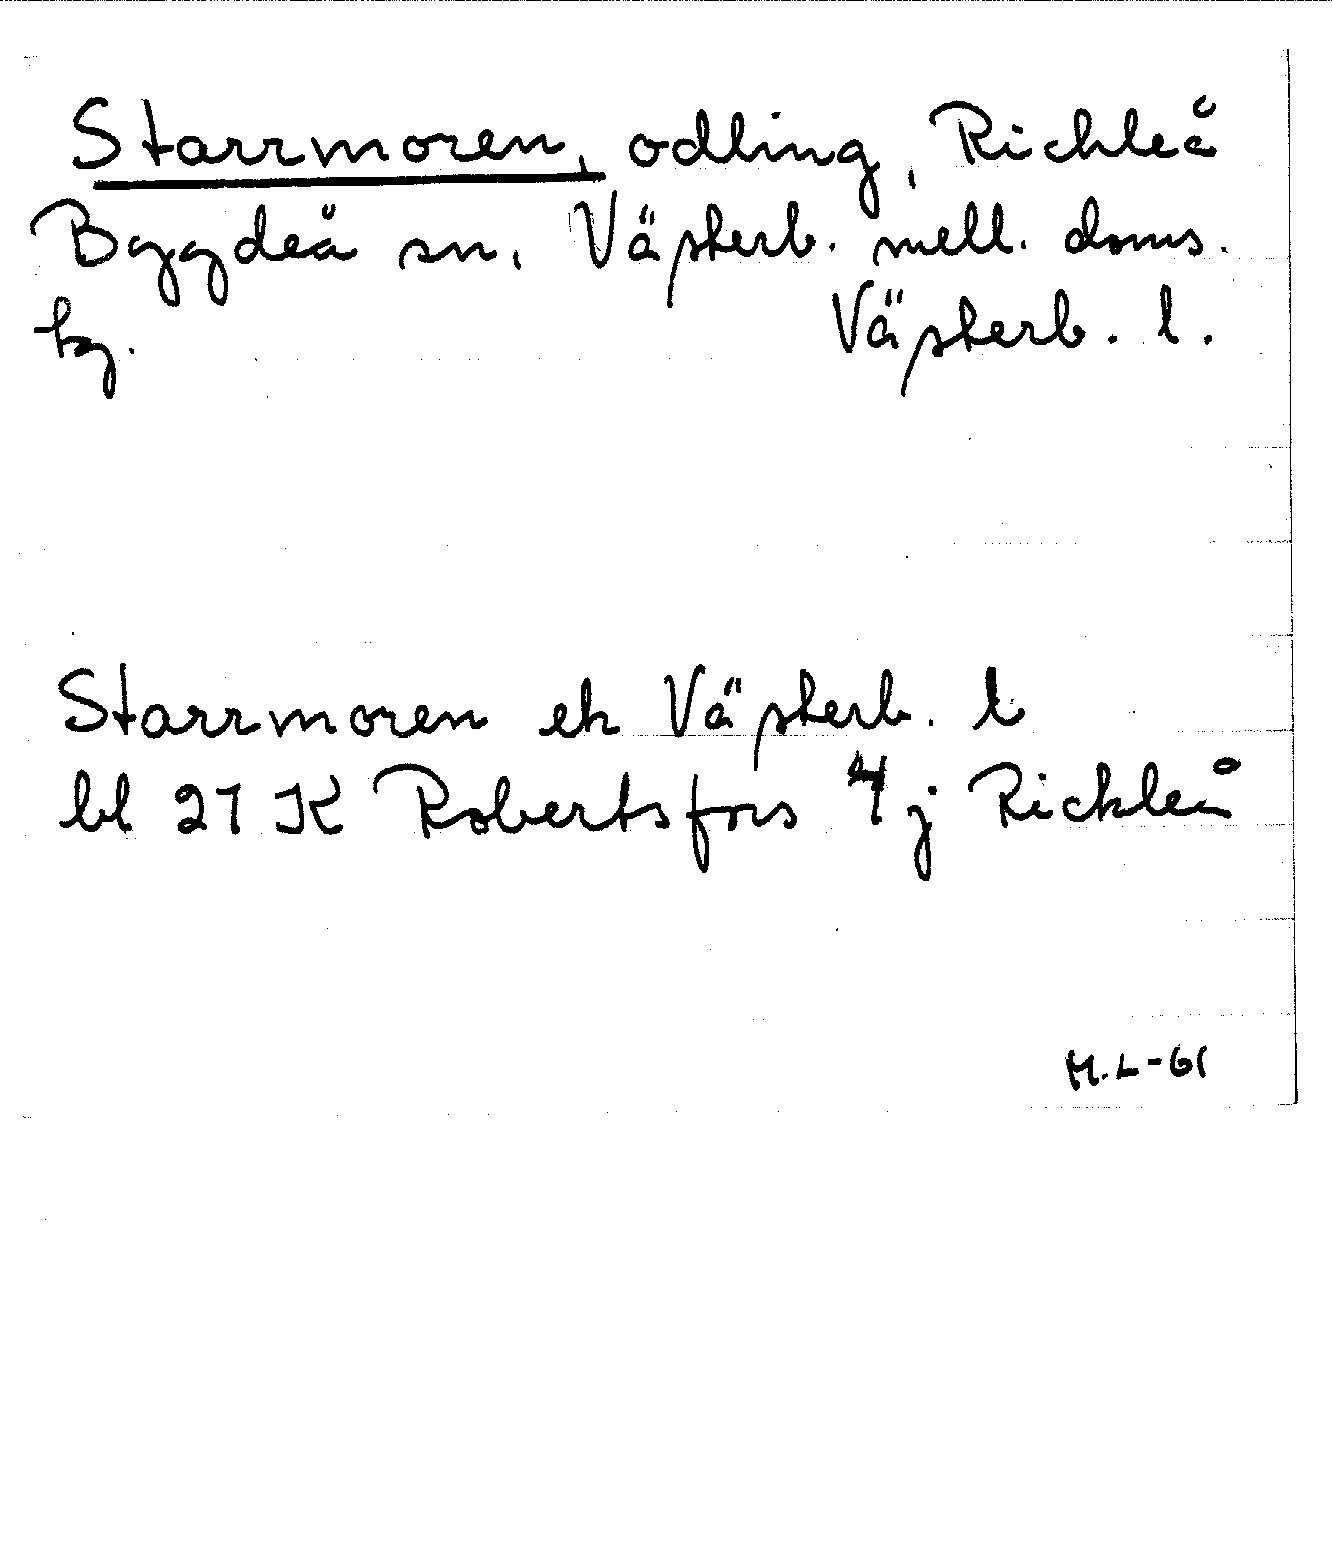 Starrmoren, odling, Rickleå
Bygdeå sn, Västerb. mell. doms.
tg. Västerb. l.
Starrmoren ek Västerb. l
bl 21 K Robertsfors 4 j Rickleå
M.L-61